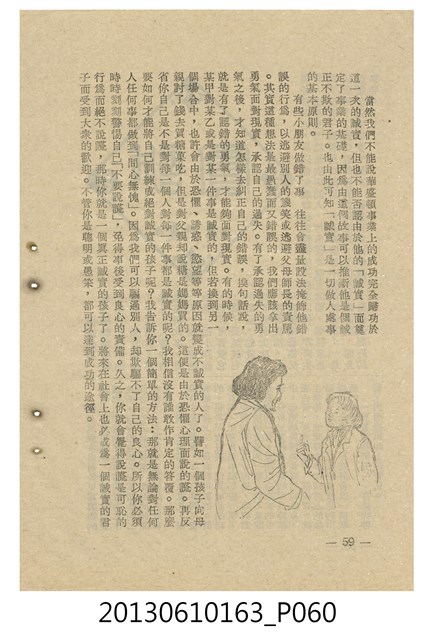 當然我們不能說華盛頓事業上的成功完全歸功於
這一次的誠實，但也不能否認由於他的「誠實」而奠
定了事業的基礎，因為由這個故事可以推斷他是個誠
正不欺的君子。也由此可知「誠實」是一切做人處事
的基本原則。
有些小朋友做錯了事，往往會儘量設法掩飾他錯
誤的行為，以逃避別人的譏笑或逃避父母師長的責罵
。其實這種想法是最愚蠢而又錯誤的，我們應該拿出
勇氣面對現實，承認自己的過失。有了承認過失的勇
氣之後，才知道怎樣去糾正自己的錯誤，換句話說，
就是有了認錯的勇氣，才能夠面對現實。有的時候，
某甲對某乙或是對某一件事是誠實的，但若換到另一
個場合中，也許會由於恐懼、誘惑、慾望等等原因就變成不誠實的人了。譬如一個孩子向母
親討了錢去買糖菓吃，但是對父親却說糖是媽媽買的。這便是由於恐懼心理而說的謊。再反
省你自己是不是對每一個人對每一件事都是誠實的呢？我相信沒有誰敢作肯定的答覆。那麼
要如何才能將自己訓練成絕對誠實的孩子呢？我告訴你一個簡單的方法：那就是無論對任何
人任何事都做到「問心無愧」。因為我們可以騙過別人，却欺騙不了自己的良心。所以你必須
時時刻刻警惕自己「不要說謊」，免得事後受到良心的責備。久之，你就會覺得說謊是可恥的
行為而絕不說謊，那時你就是一個真正誠實的孩子了。將來在社會上也必成為一個誠實的君
子而受到大衆的歡迎。不管你是聰明或愚笨，都可以達到成功的途徑。
— 59 —
20130610163_P060